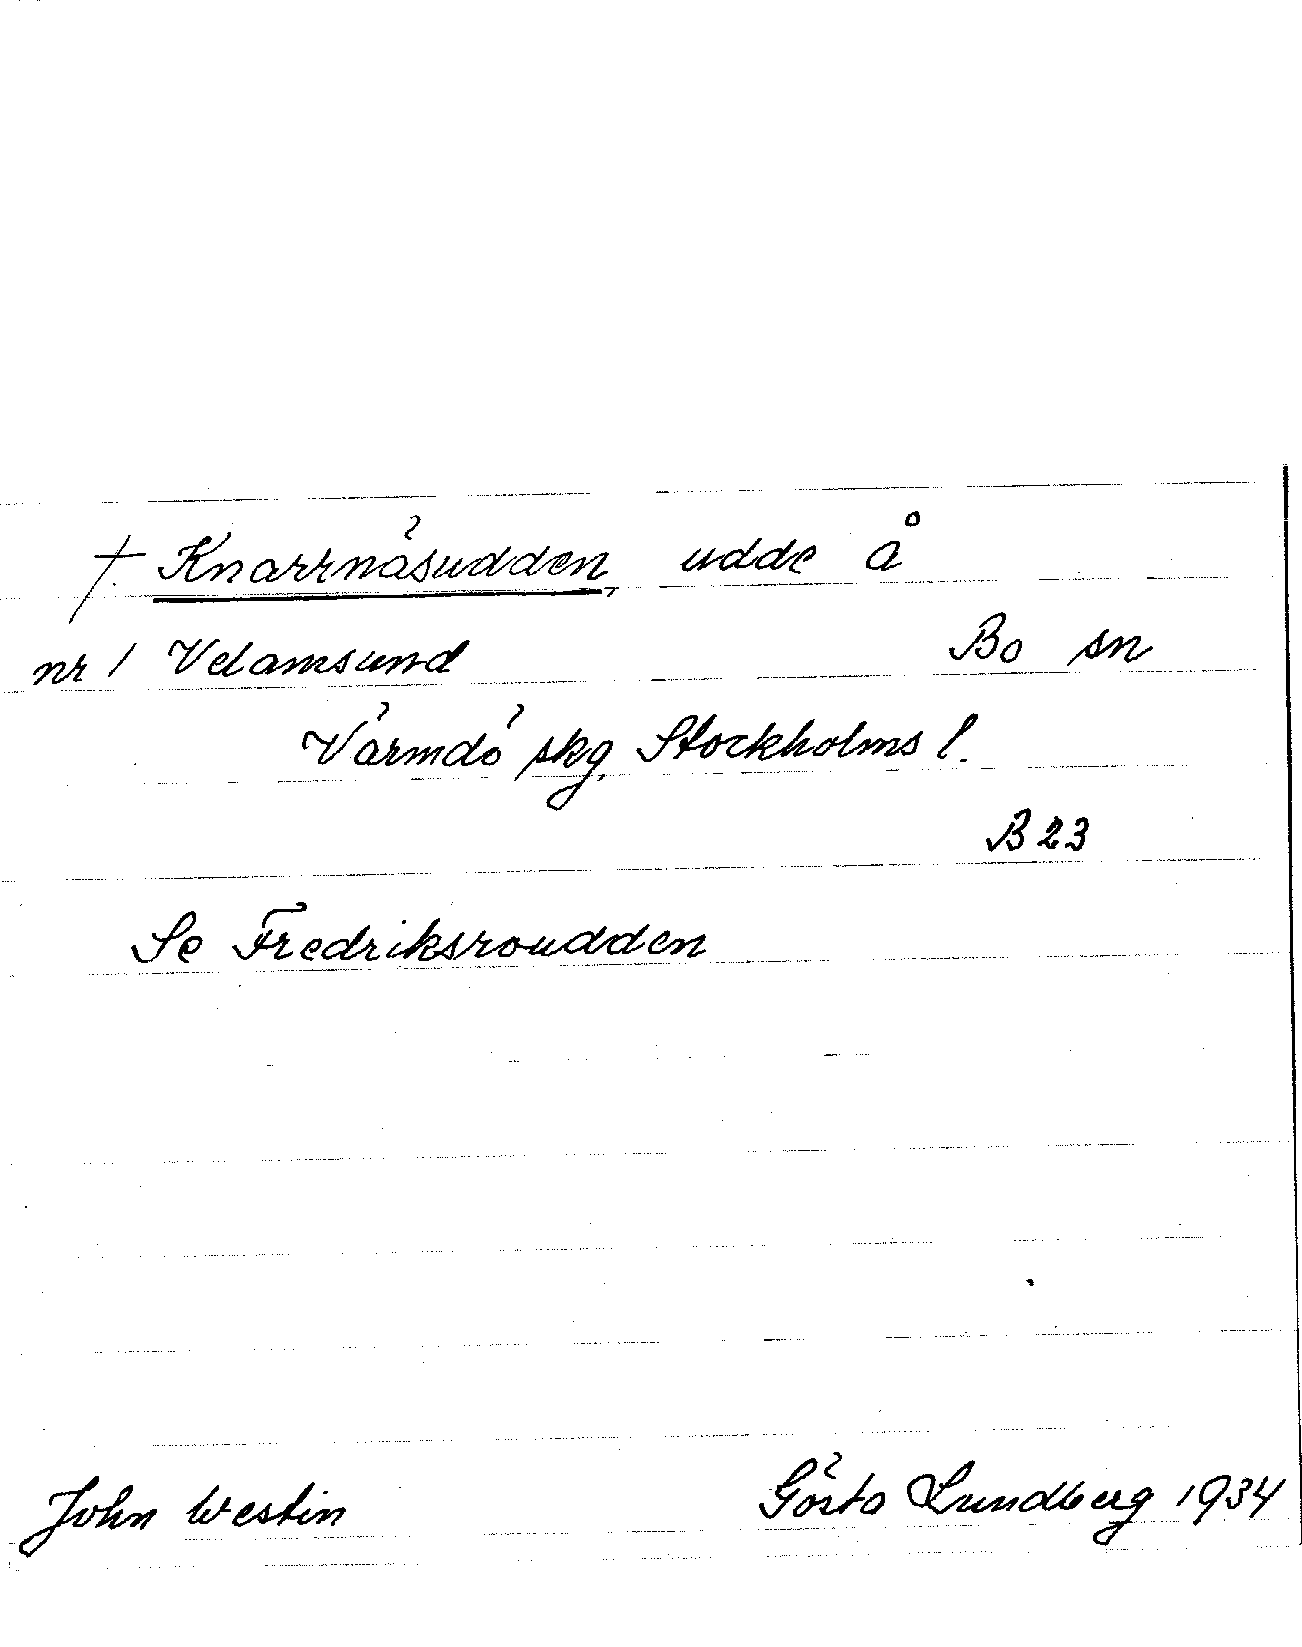 † Knarrnäsudden, udde å
nr 1 Velamsund Bo sn
Värmdö skg. Stockholms l.
B 23
Se Fredriksroudden
John Westin Gösta Lundberg 1934